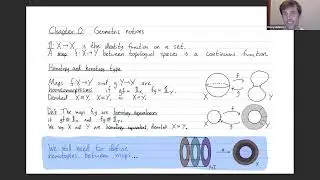 Chapter 0: Geometric notions
1: X→X is the identity function on a set.
A map f: X→Y between topological spaces is a continuous function.
Homotopy and homotopy type
Maps f: X→Y and g: Y→X are
homeomorphisms if gf = 1ₓ, fg = 1ᵧ.
Denoted X ≅ Y, or X = Y.
Def: The maps f, g are homotopy equivalences
if gf ≃ 1ₓ and fg ≃ 1ᵧ.
We say X and Y are homotopy equivalent, denoted X ≃ Y.
We still need to define
homotopies between maps...
X
f
g
Y